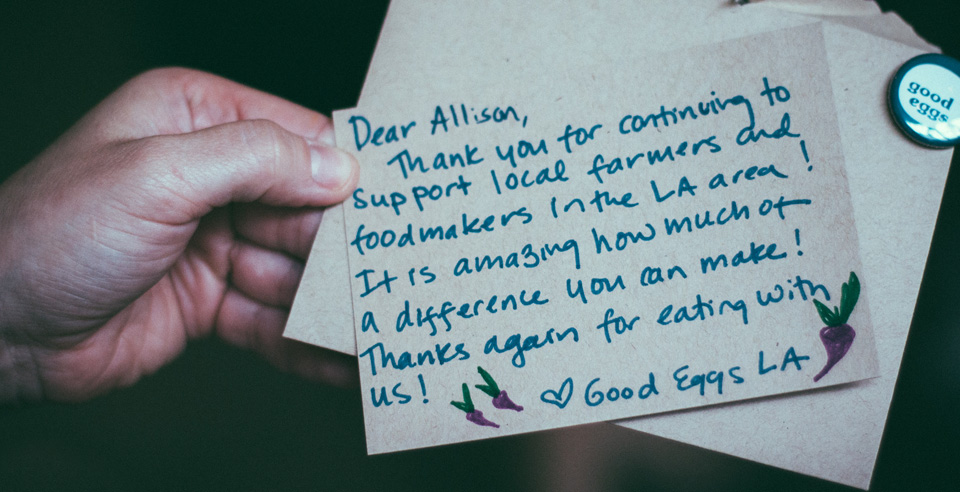 Dear Allison,
Thank you for continuing to
support local farmers and
foodmakers in the LA area!
It is amazing how much of
a difference you can make!
Thanks again for eating with
us!
♡ Good Eggs LA
good
eggs